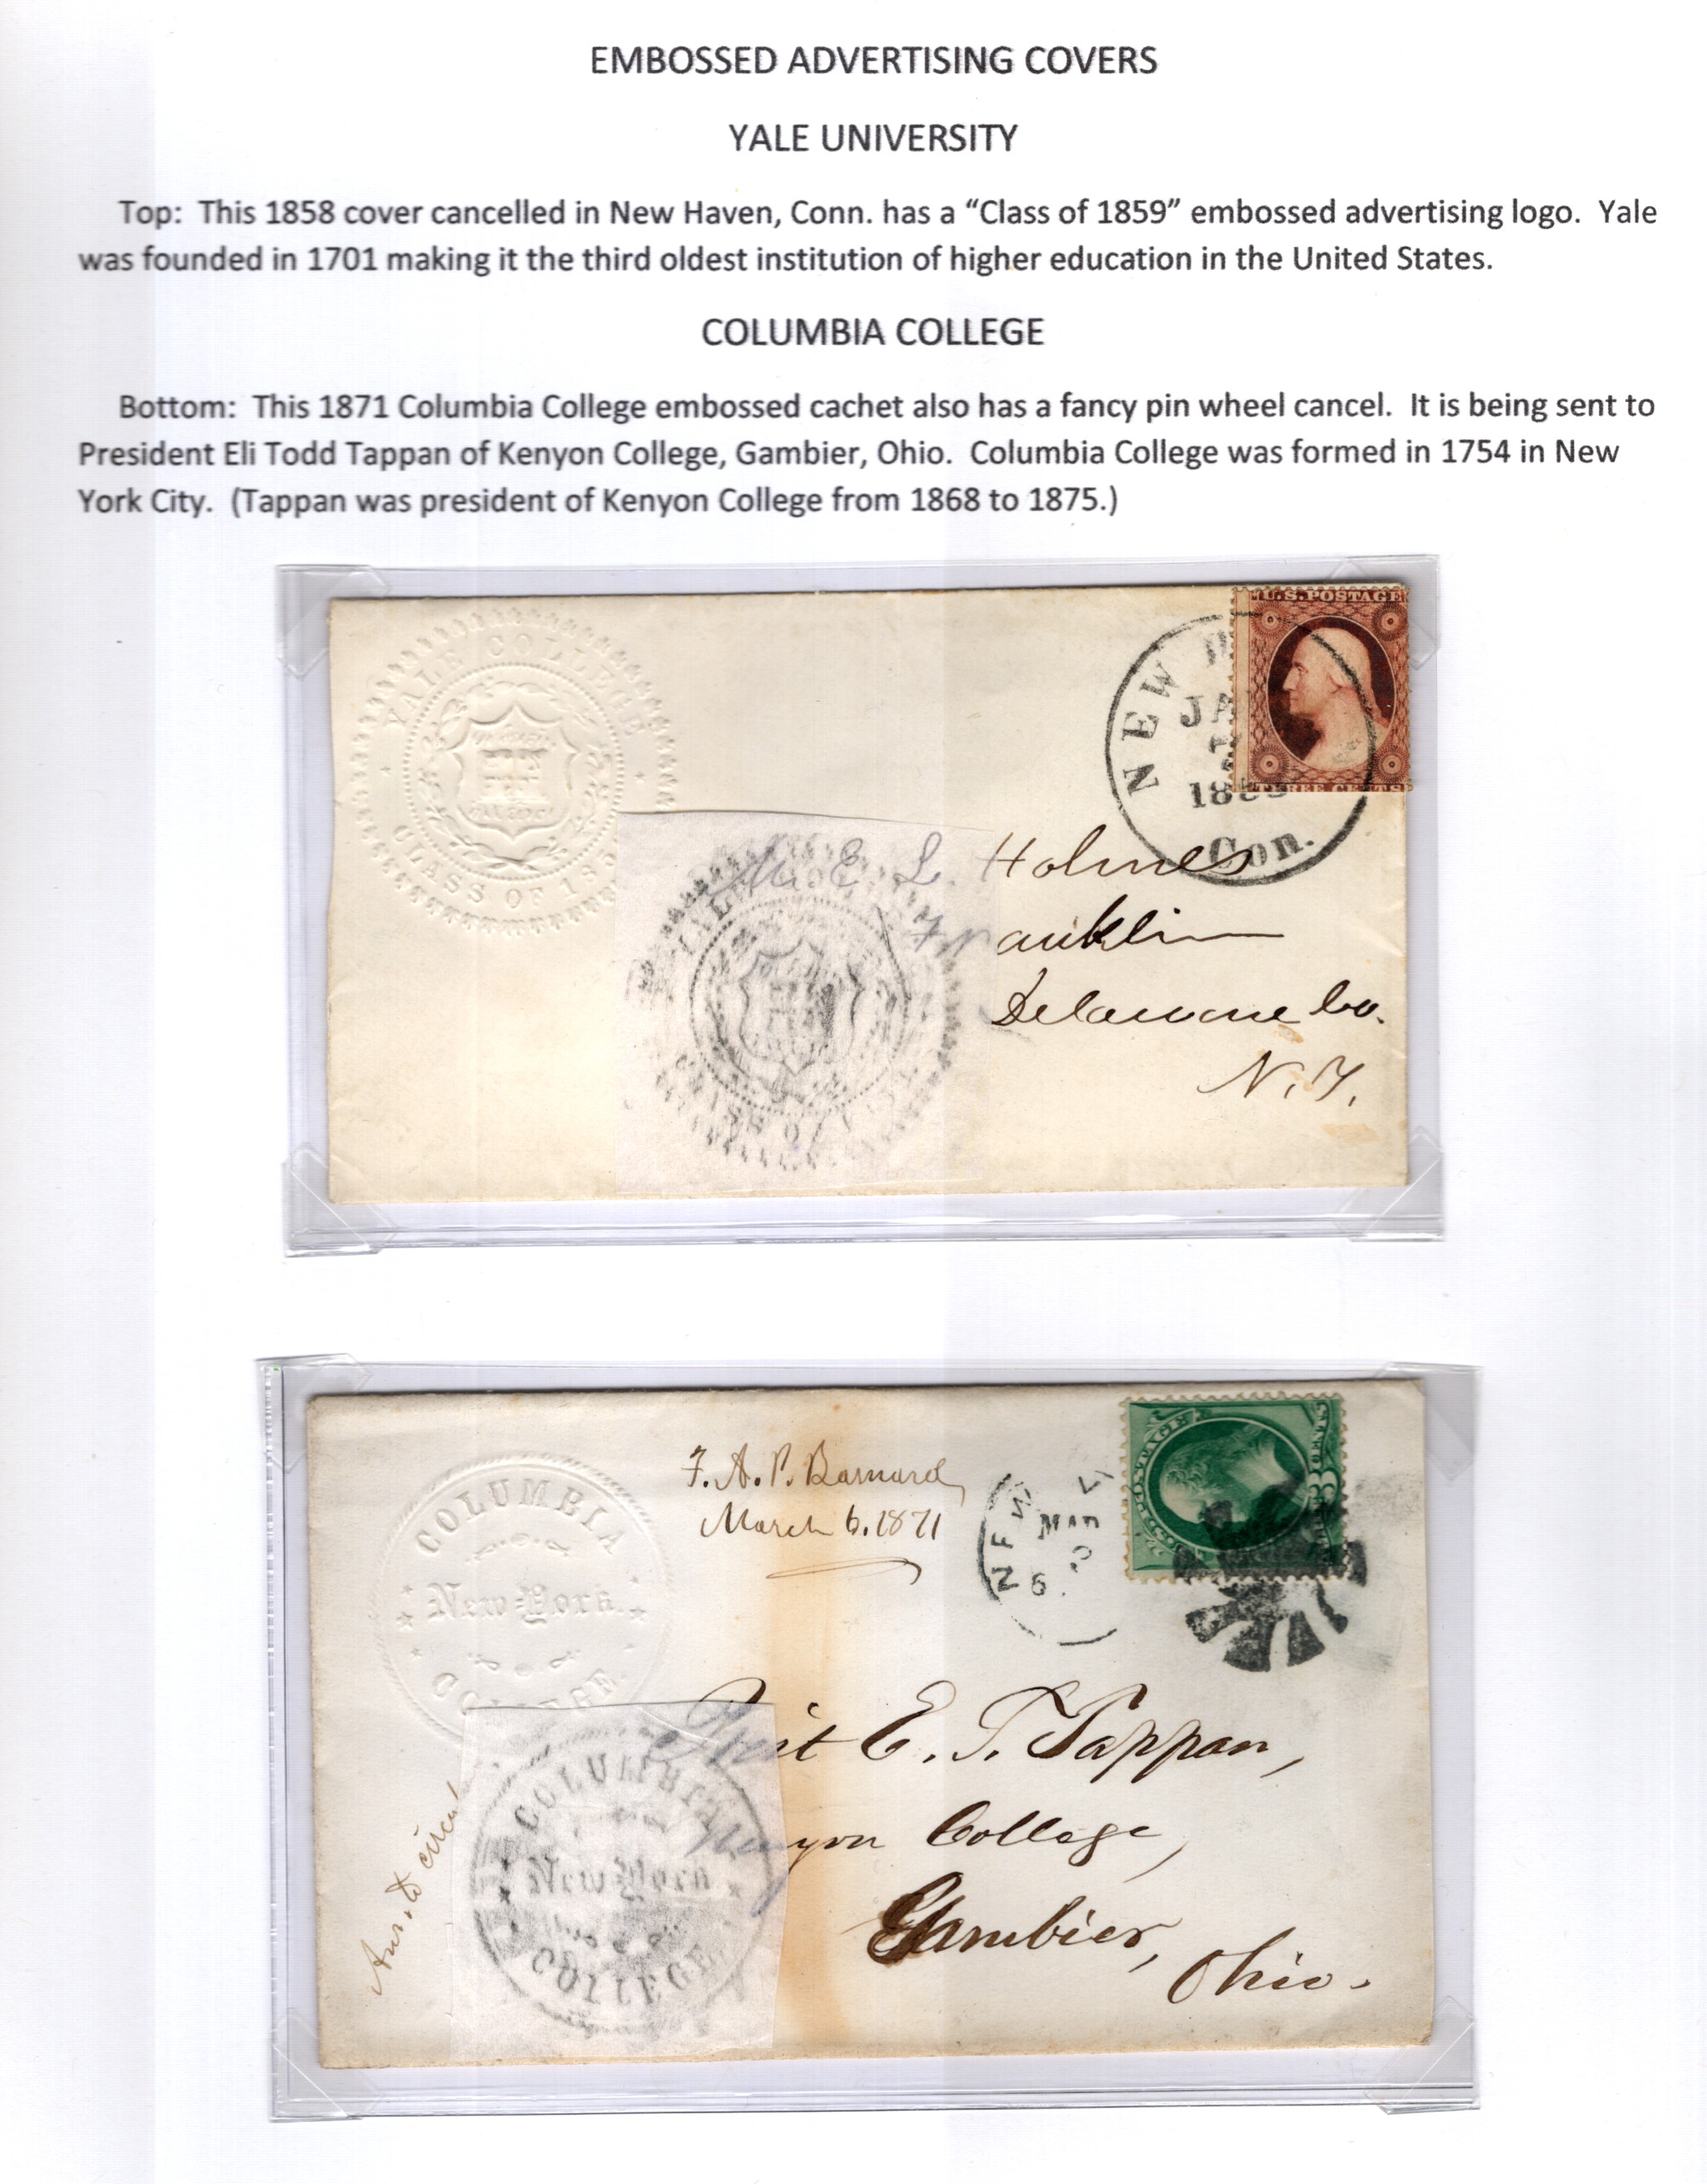 EMBOSSED ADVERTISING COVERS
YALE UNIVERSITY
Top: This 1858 cover cancelled in New Haven, Conn. has a “Class of 1859” embossed advertising logo. Yale
was founded in 1701 making it the third oldest institution of higher education in the United States.
COLUMBIA COLLEGE
Bottom: This 1871 Columbia College embossed cachet also has a fancy pin wheel cancel. It is being sent to
President Eli Todd Tappan of Kenyon College, Gambier, Ohio. Columbia College was formed in 1754 in New
York City. (Tappan was president of Kenyon College from 1868 to 1875.)
YALE COLLEGE
CLASS OF 185
NEW
JA
Con.
U.S. POSTAGE
THREE CENTS
M. E. L. Holmes
Franklin
Delaware Co.
N.Y.
COLUMBIA
New-York.
COLLEGE
F. A. P. Barnard,
March 6. 1871
NEW
MAR
6
U.S. POSTAGE
3
Prest E. T. Tappan,
Kenyon College,
Gambier,
Ohio.
Ans. to
COLUMBIA
New-York
COLLEGE